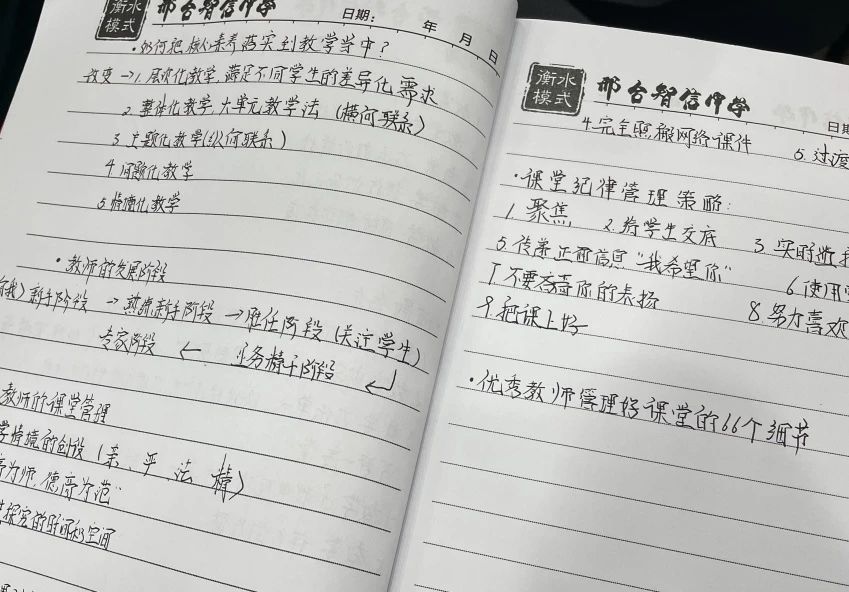 衡水模式 邢台智信中学 日期： 年 月 日
·如何把核心素养落实到教学当中？
改变→1.层次化教学,满足不同学生的差异化需求
2.整体化教学,大单元教学法（横向联系）
3.主题化教学(纵向联系）
4.问题化教学
5.情境化教学
·教师的发展阶段
新手阶段→熟练新手阶段→胜任阶段(关注学生)
专家阶段 ← 业务精干阶段 ↵
教师的课堂管理
情境的创设(亲、平、法、精)
为师,德高为范"
探究的时间和空间
衡水模式 邢台智信中学 日期
4.完全照搬网络课件 5.过渡
·课堂纪律管理策略:
1.聚焦 2.与学生交底 3.实时
5.传递正面信息"我希望你" 6.使用
7不要吝啬你的表扬 8.努力喜欢
9.把课上好
·优秀教师管理好课堂的66个细节